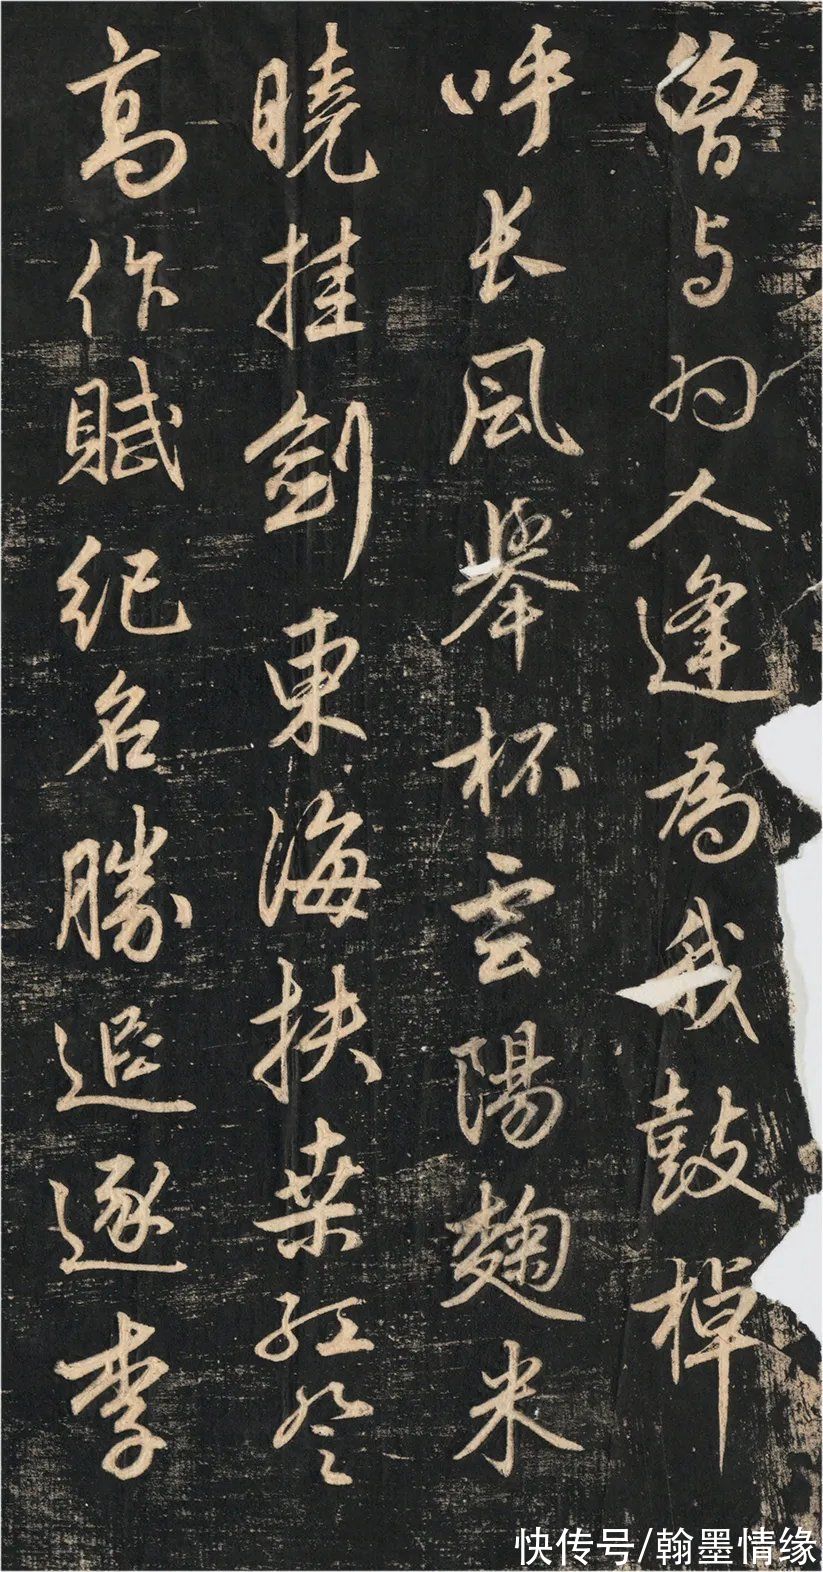 曾与羽人逢為我鼓棹
呼长風舉杯雲陽麹米
曉挂劍東海扶桒紅登
高作賦紀名勝追逐李
快传号/翰墨情缘